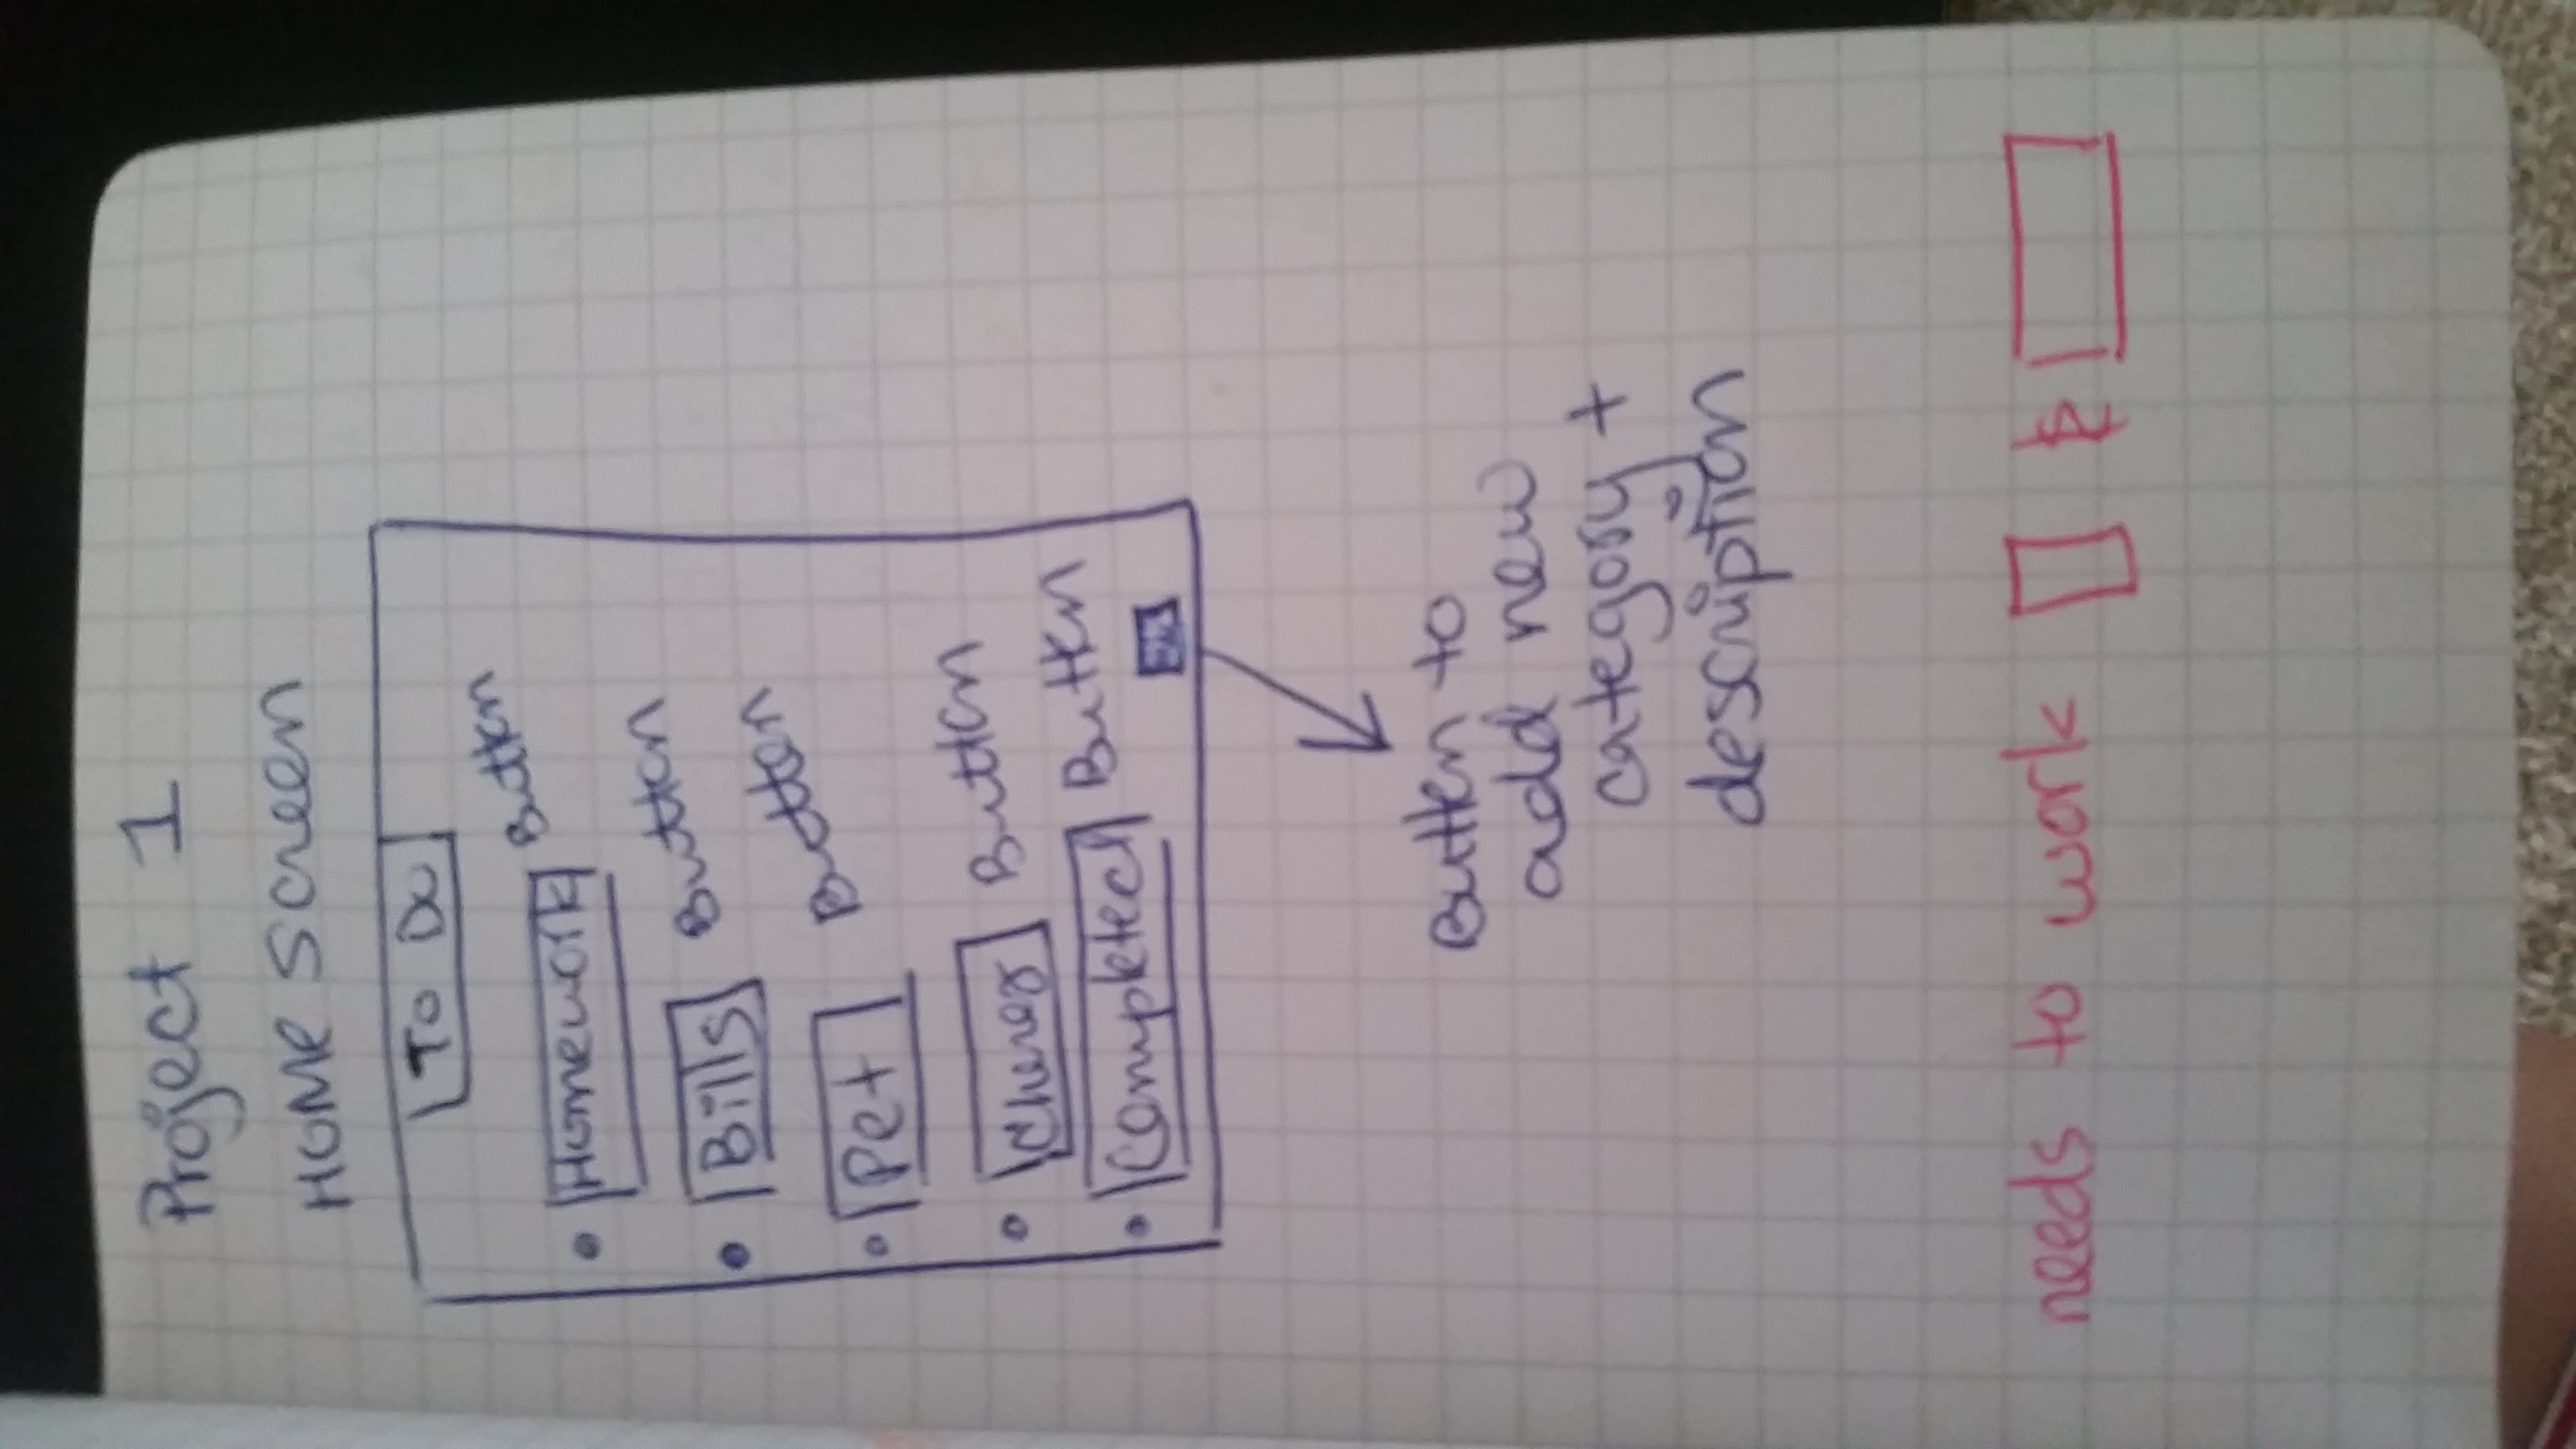 Project 1
HOME SCREEN
To Do
Homework Button
Bills Button
Pet Button
Chores Button
Completed Button
Button to
add new
category +
description
needs to work &